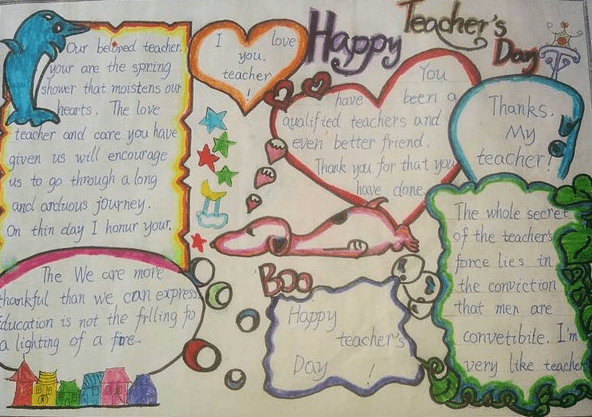 Happy Teacher's Day
Our beloved teacher.
your are the spring
shower that moistens our
hearts. The love
teacher and care you have
given us will encourage
us to go through a long
and arduous journey.
On thin day I honur your.
I love
you,
teacher
!
You
have been a
qualified teachers and
even better friend.
Thank you for that you
have done.
Thanks,
My
teacher!
The We are more
thankful than we can express
Education is not the frlling fo
a lighting of a fire.
Boo
Happy
teacher's
Day !
The whole secret
of the teacher's
force lies in
the conviction
that men are
convetibile. I'm
very like teacher